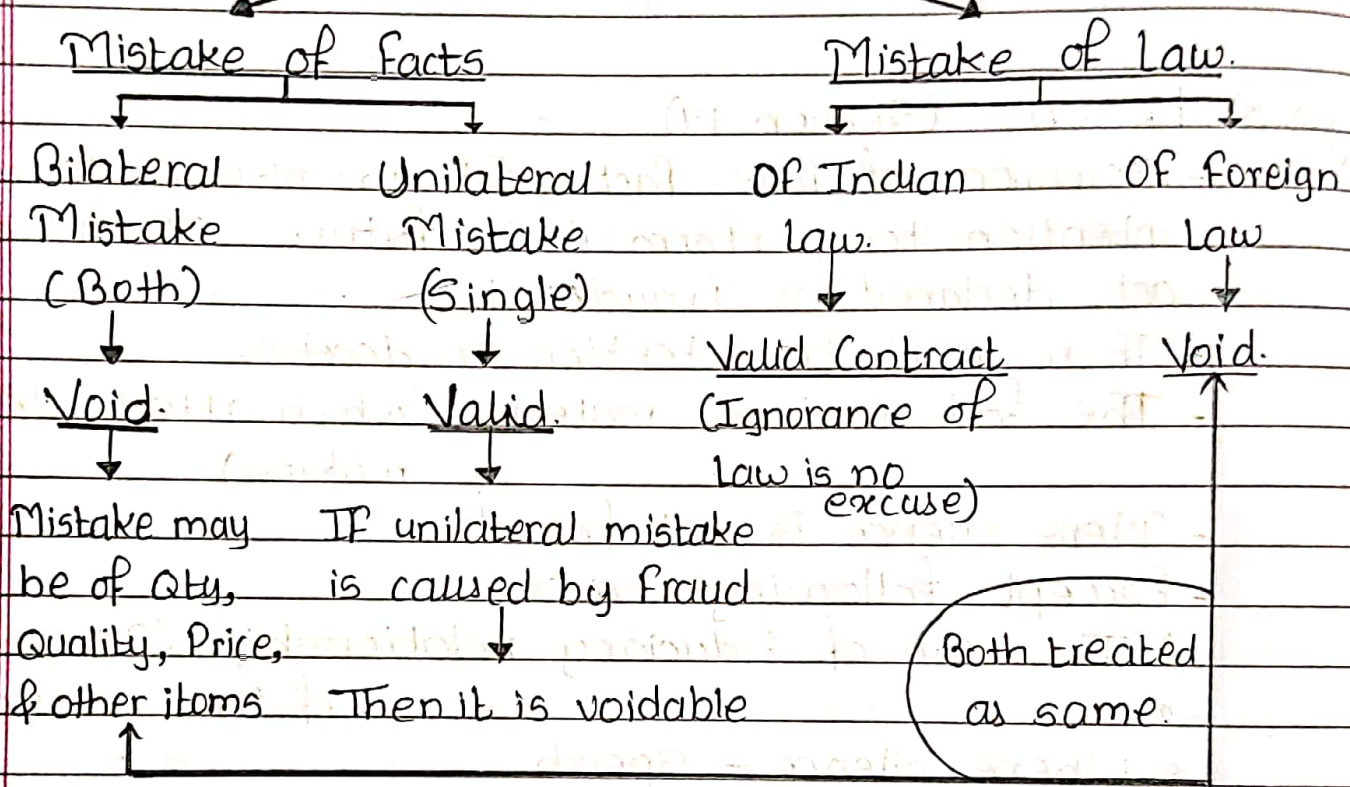 Mistake of facts
Mistake of Law.
Bilateral
Mistake
(Both)
Void.
Mistake may
be of Qty,
Quality, Price,
& other itoms
Unilateral
Mistake
(Single)
Valid.
If unilateral mistake
is caused by fraud
Then it is voidable
Of Indian
Law.
Valid Contract
(Ignorance of
Law is no
excuse)
Of foreign
Law
Void.
Both treated
as same.